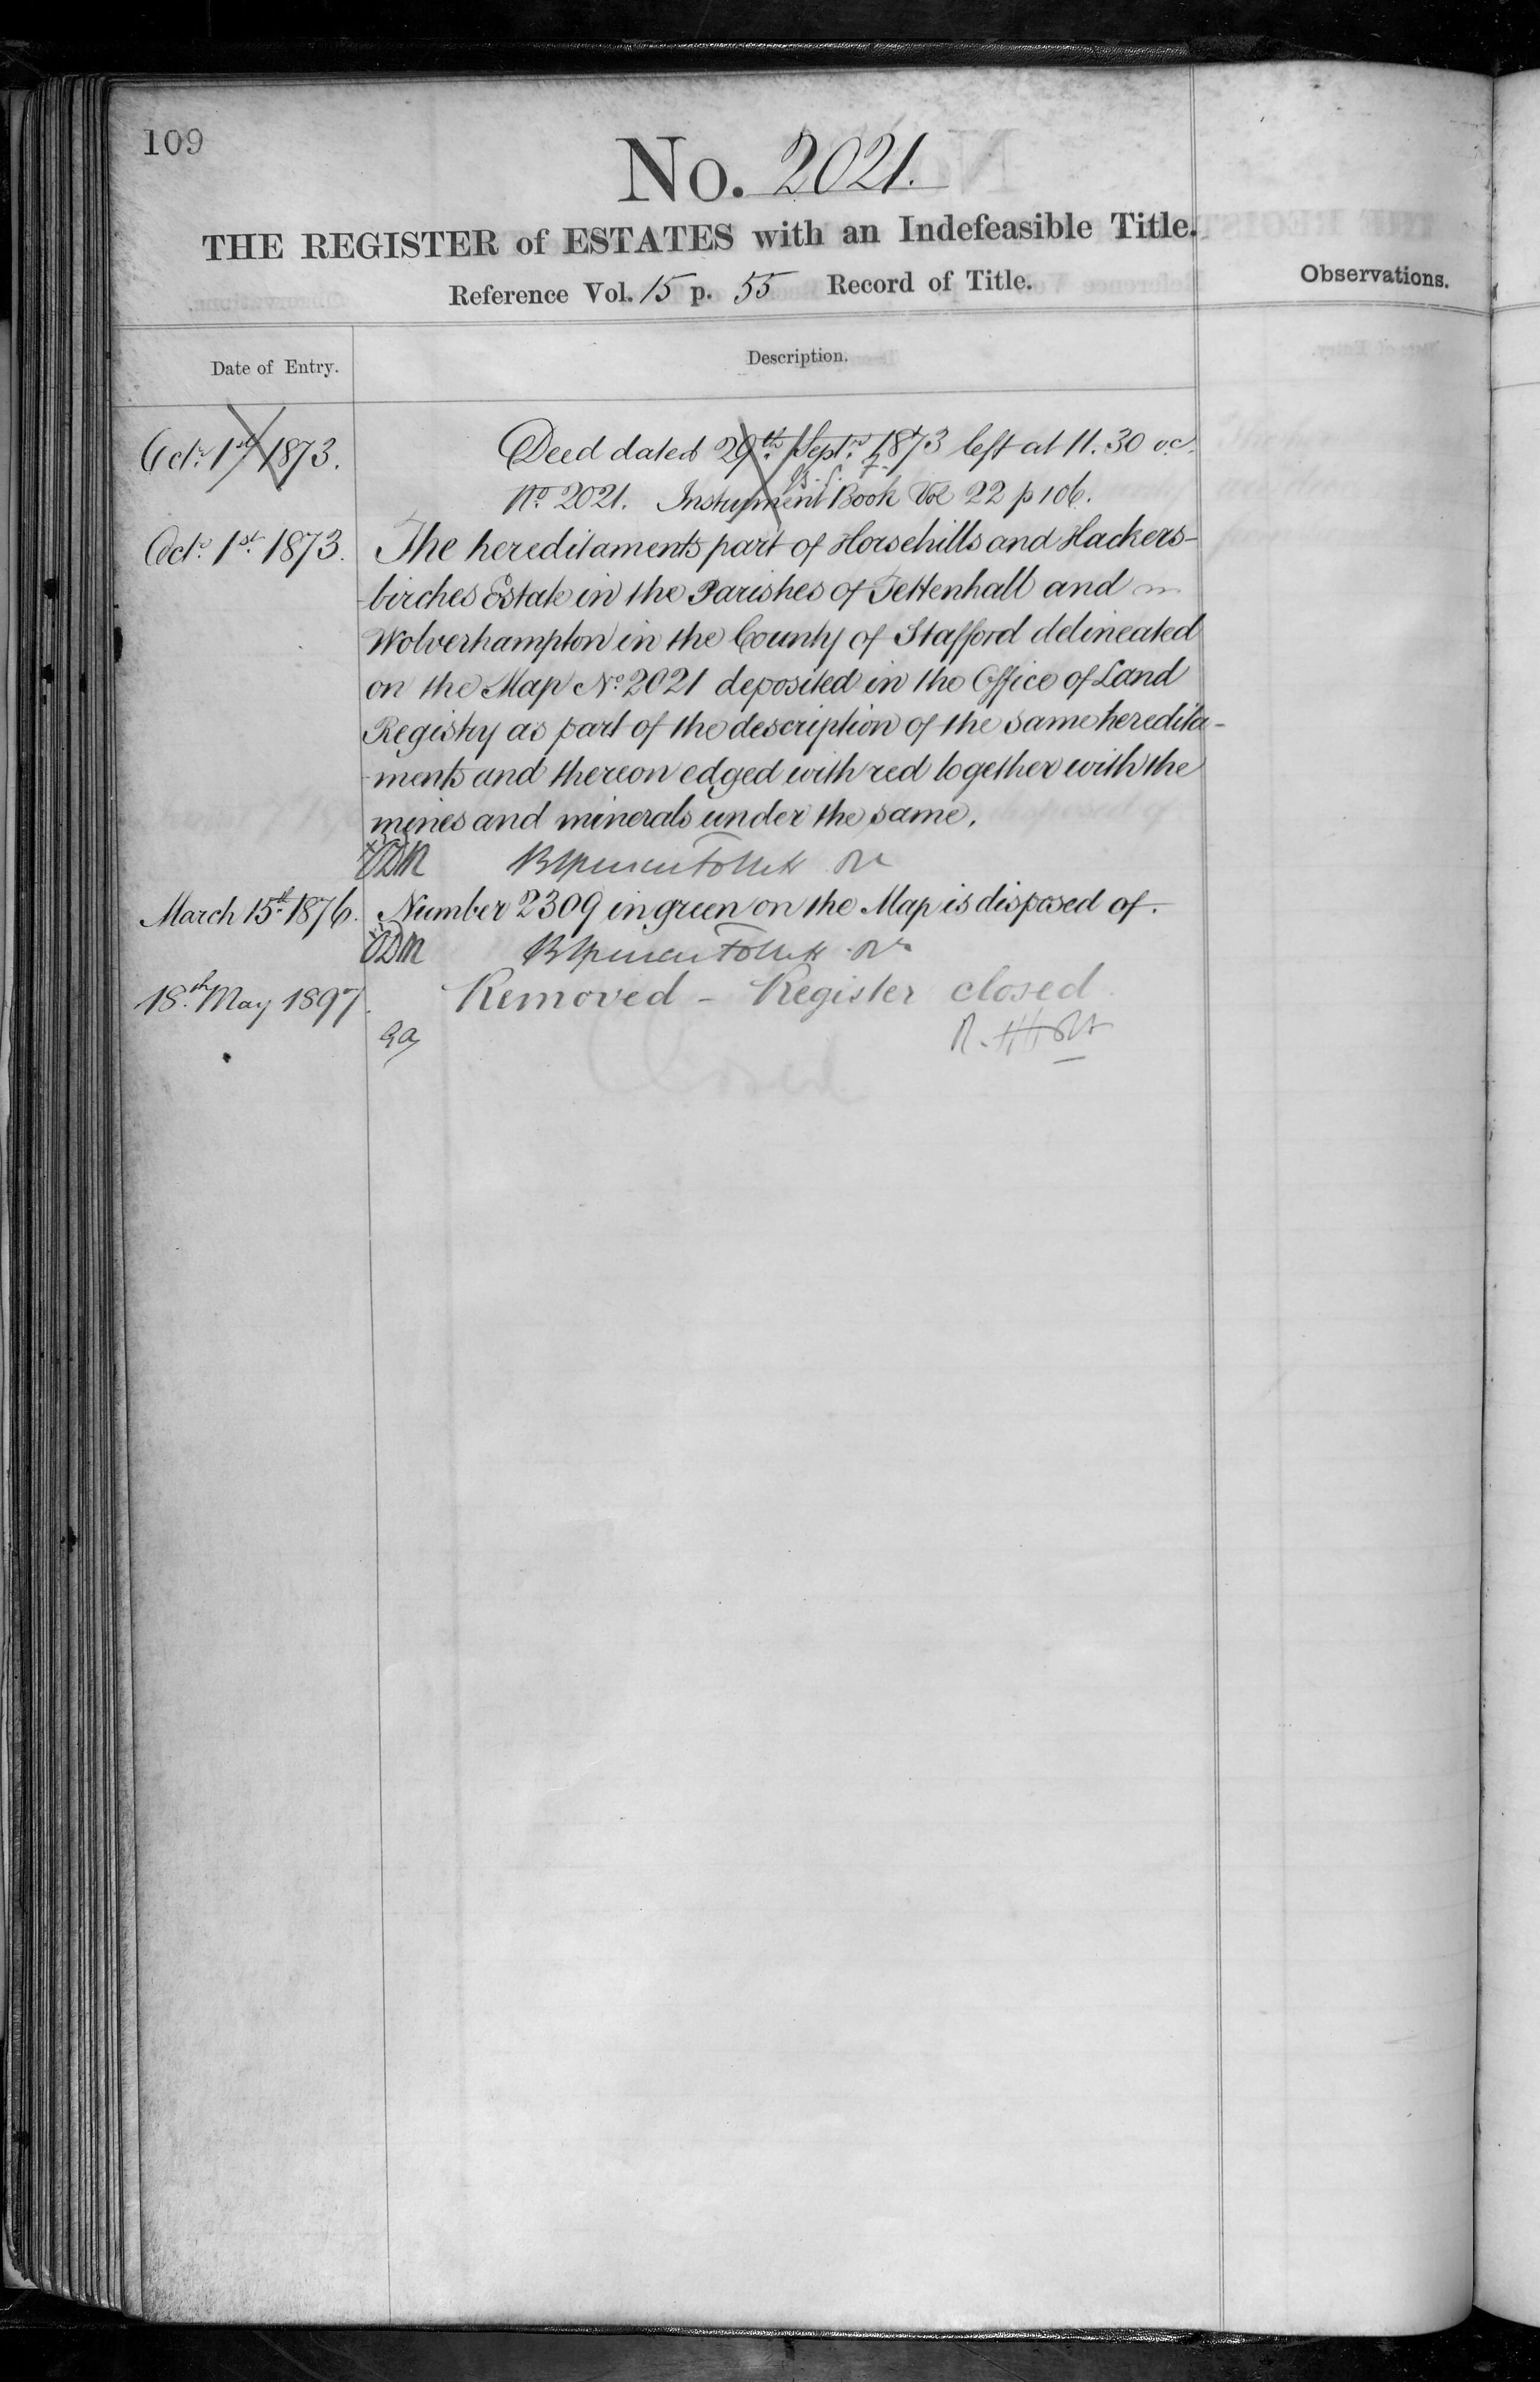 109
No. 2021.
THE REGISTER of ESTATES with an Indefeasible Title.
Reference Vol. 15 p. 55 Record of Title.
Observations.
Date of Entry.
Description.
Octr. 1st 1873.
Deed dated 29th. Septr. 1873 left at 11.30 oc.
No. 2021. Instrument Book Vol 22 p 106.
Octr. 1st. 1873.
The hereditaments part of Horsehills and Hackers-
birches Estate in the Parishes of Tettenhall and
Wolverhampton in the County of Stafford delineated
on the Map No. 2021 deposited in the Office of Land
Registry as part of the description of the same heredita-
ments and thereon edged with red together with the
mines and minerals under the same.
March 15th. 1876.
Number 2309 in green on the Map is disposed of.
18.th May 1897.
Removed - Register closed.
R. H. Holt
Closed